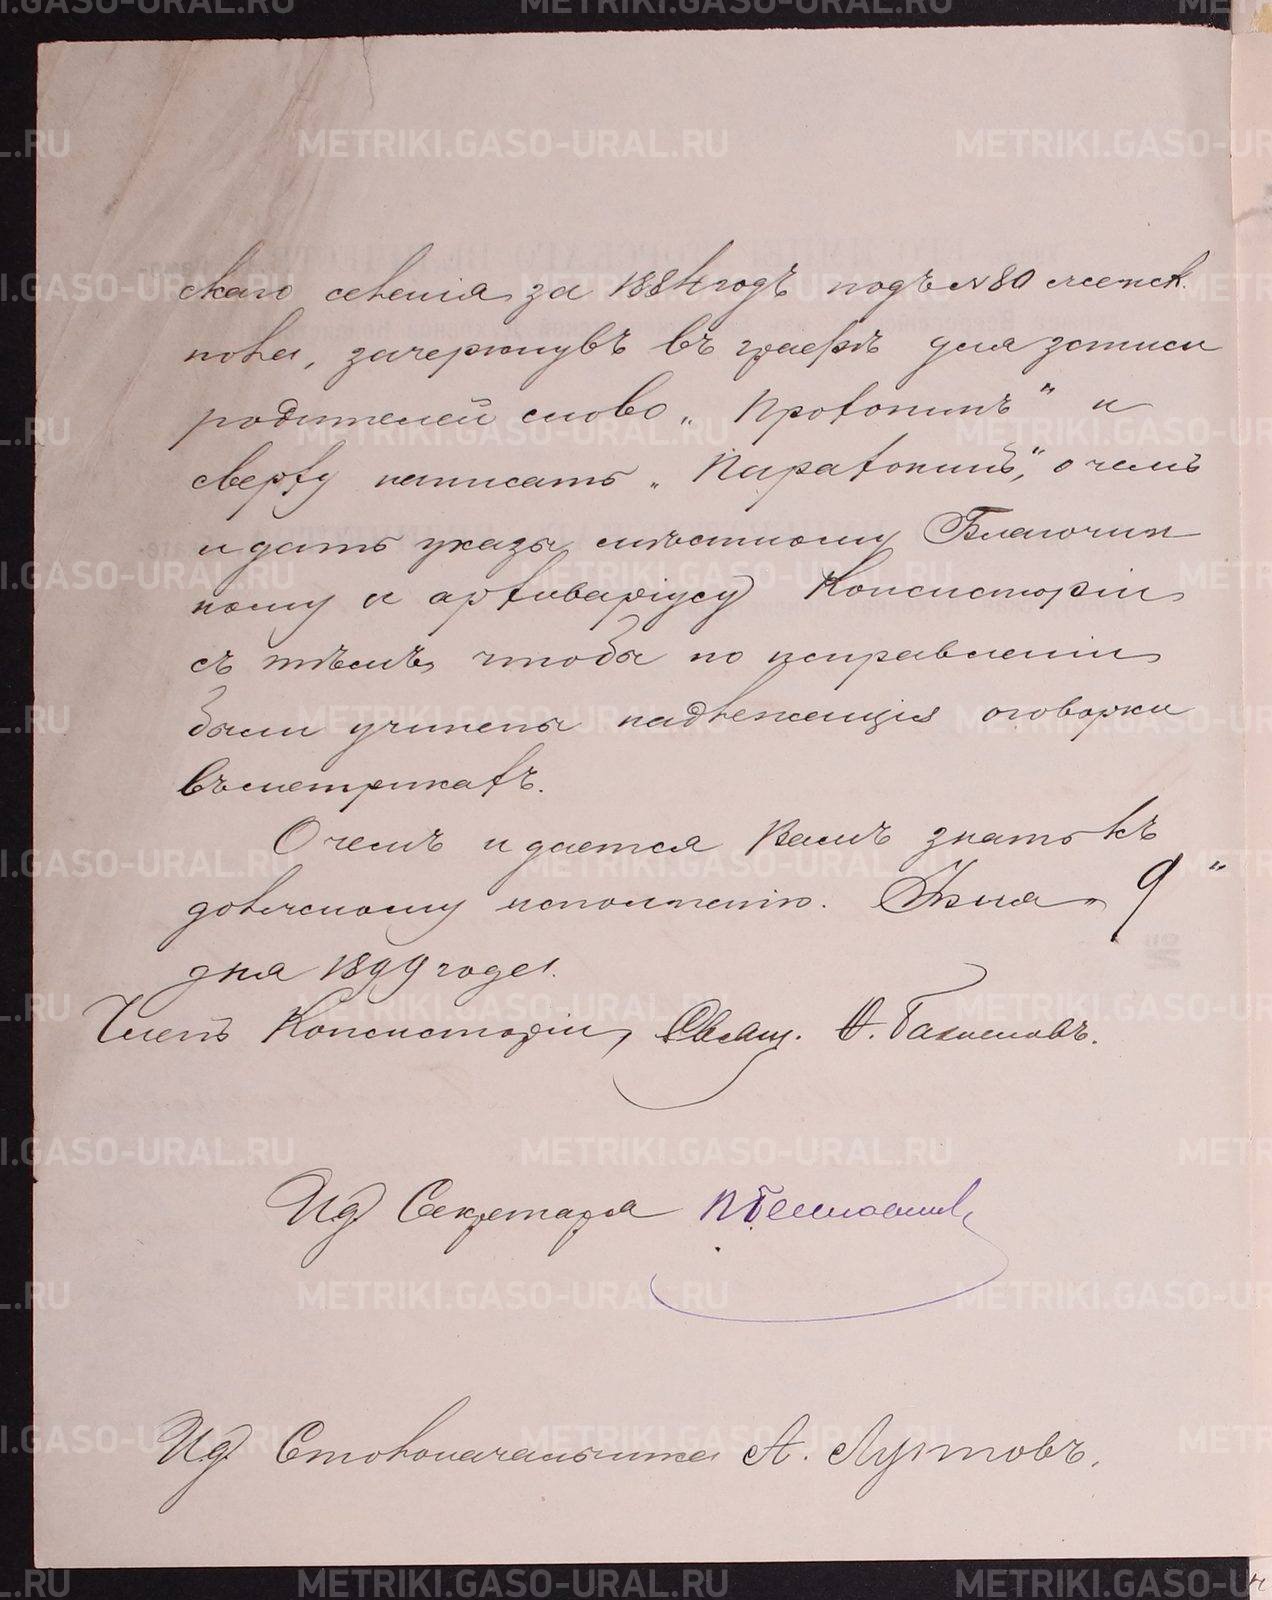 скаго селенія за 1884 годъ подъ № 80 мужск.
пола, зачеркнувъ въ графѣ для записи
родителей слово „Прохонинъ" и
сверху написать „Парахонинъ", о чемъ
и дать указы мѣстному Благочин
ному и архиваріусу Консисторіи
съ тѣмъ, чтобы по исправленіи
были учинены надлежащія оговорки
въ метрикахъ.
О чемъ и дается Вамъ знать къ
должному исполненію. Іюня „9"
дня 1899 года.
Членъ Консисторіи, Свящ.
Ид. Секретаря
Ид. Столоначальника А. Лутовъ.
METRIKI.GASO-URAL.RU